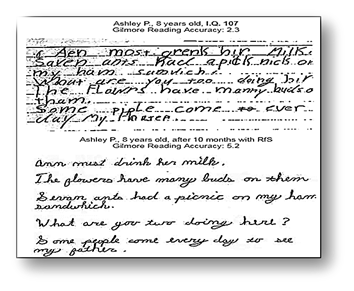 Ashley P., 8 years old, I.Q. 107
Gilmore Reading Accuracy: 2.3
Aen most drenk hir Milk.
Saven ants Had a pick nick on
my ham sanwich.
What are you too doing hir
The Flowrs have manny buds o
tham.
Some pple come to ever
day my
Ashley P., 8 years old, after 10 months with RfS
Gilmore Reading Accuracy: 5.2
Ann must drink her milk.
The flowers have many buds on them
Seven ants had a picnic on my ham
sandwhich.
What are you two doing here?
Some people come every day to see
my father.